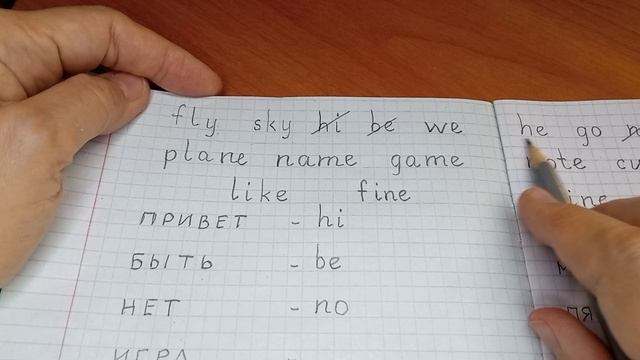 fly sky hi be we
plane name game
like fine
ПРИВЕТ - hi
БЫТЬ - be
НЕТ - no
ИГРА
he go